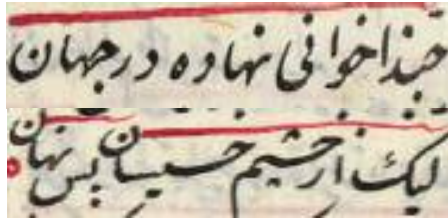 حبذا خوانی نهاده در جهان
لیک از چشم خسیسان بس نهان